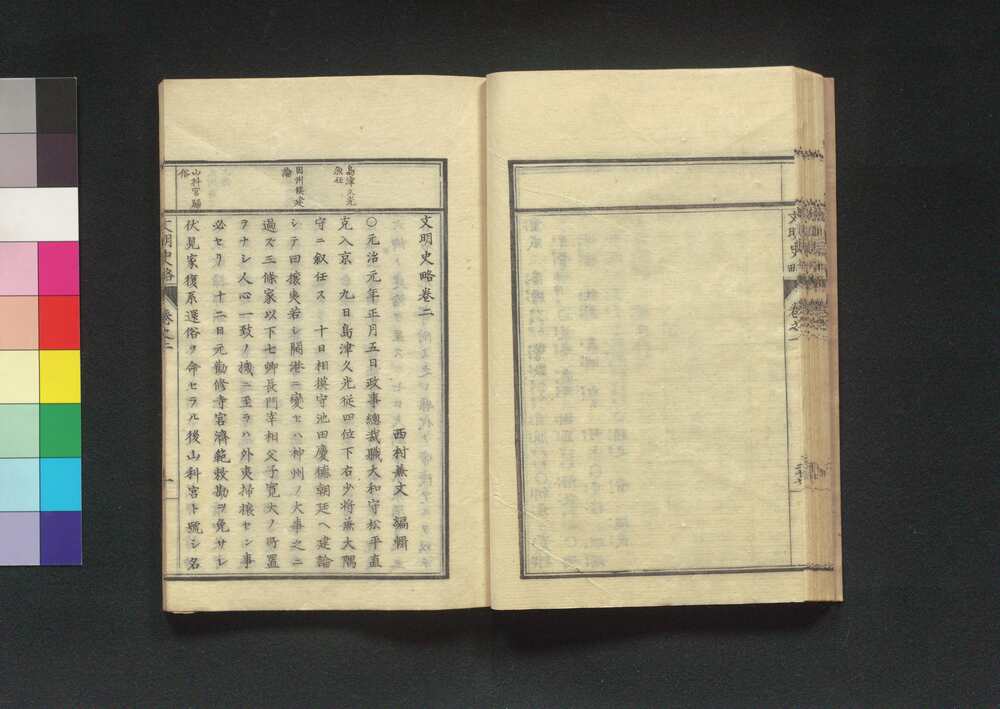 文明史
文明史略卷二
西村兼文 編輯
〇元治元年正月五日政事總裁職大和守松平直
克入京 九日島津久光從四位下右少將兼大隅
守ニ叙任ス 十日相摸守池田慶德朝廷ヘ建論
シテ曰攘夷若シ關港ニ變セハ神州ノ大事之ニ
過ス三條家以下七卿長門宰相父子寛大ノ所置
ヲナシ人心一致ノ機ニ至ラハ外夷掃攘セン事
必セリ 十二日元勸修寺宮濟範敕勘ヲ免サレ
伏見家復系還俗ヲ命セラル後山科宮ト號シ名
島津久光
叙任
因州侯建
論
山科宮歸
俗
文明史略 卷之二 一